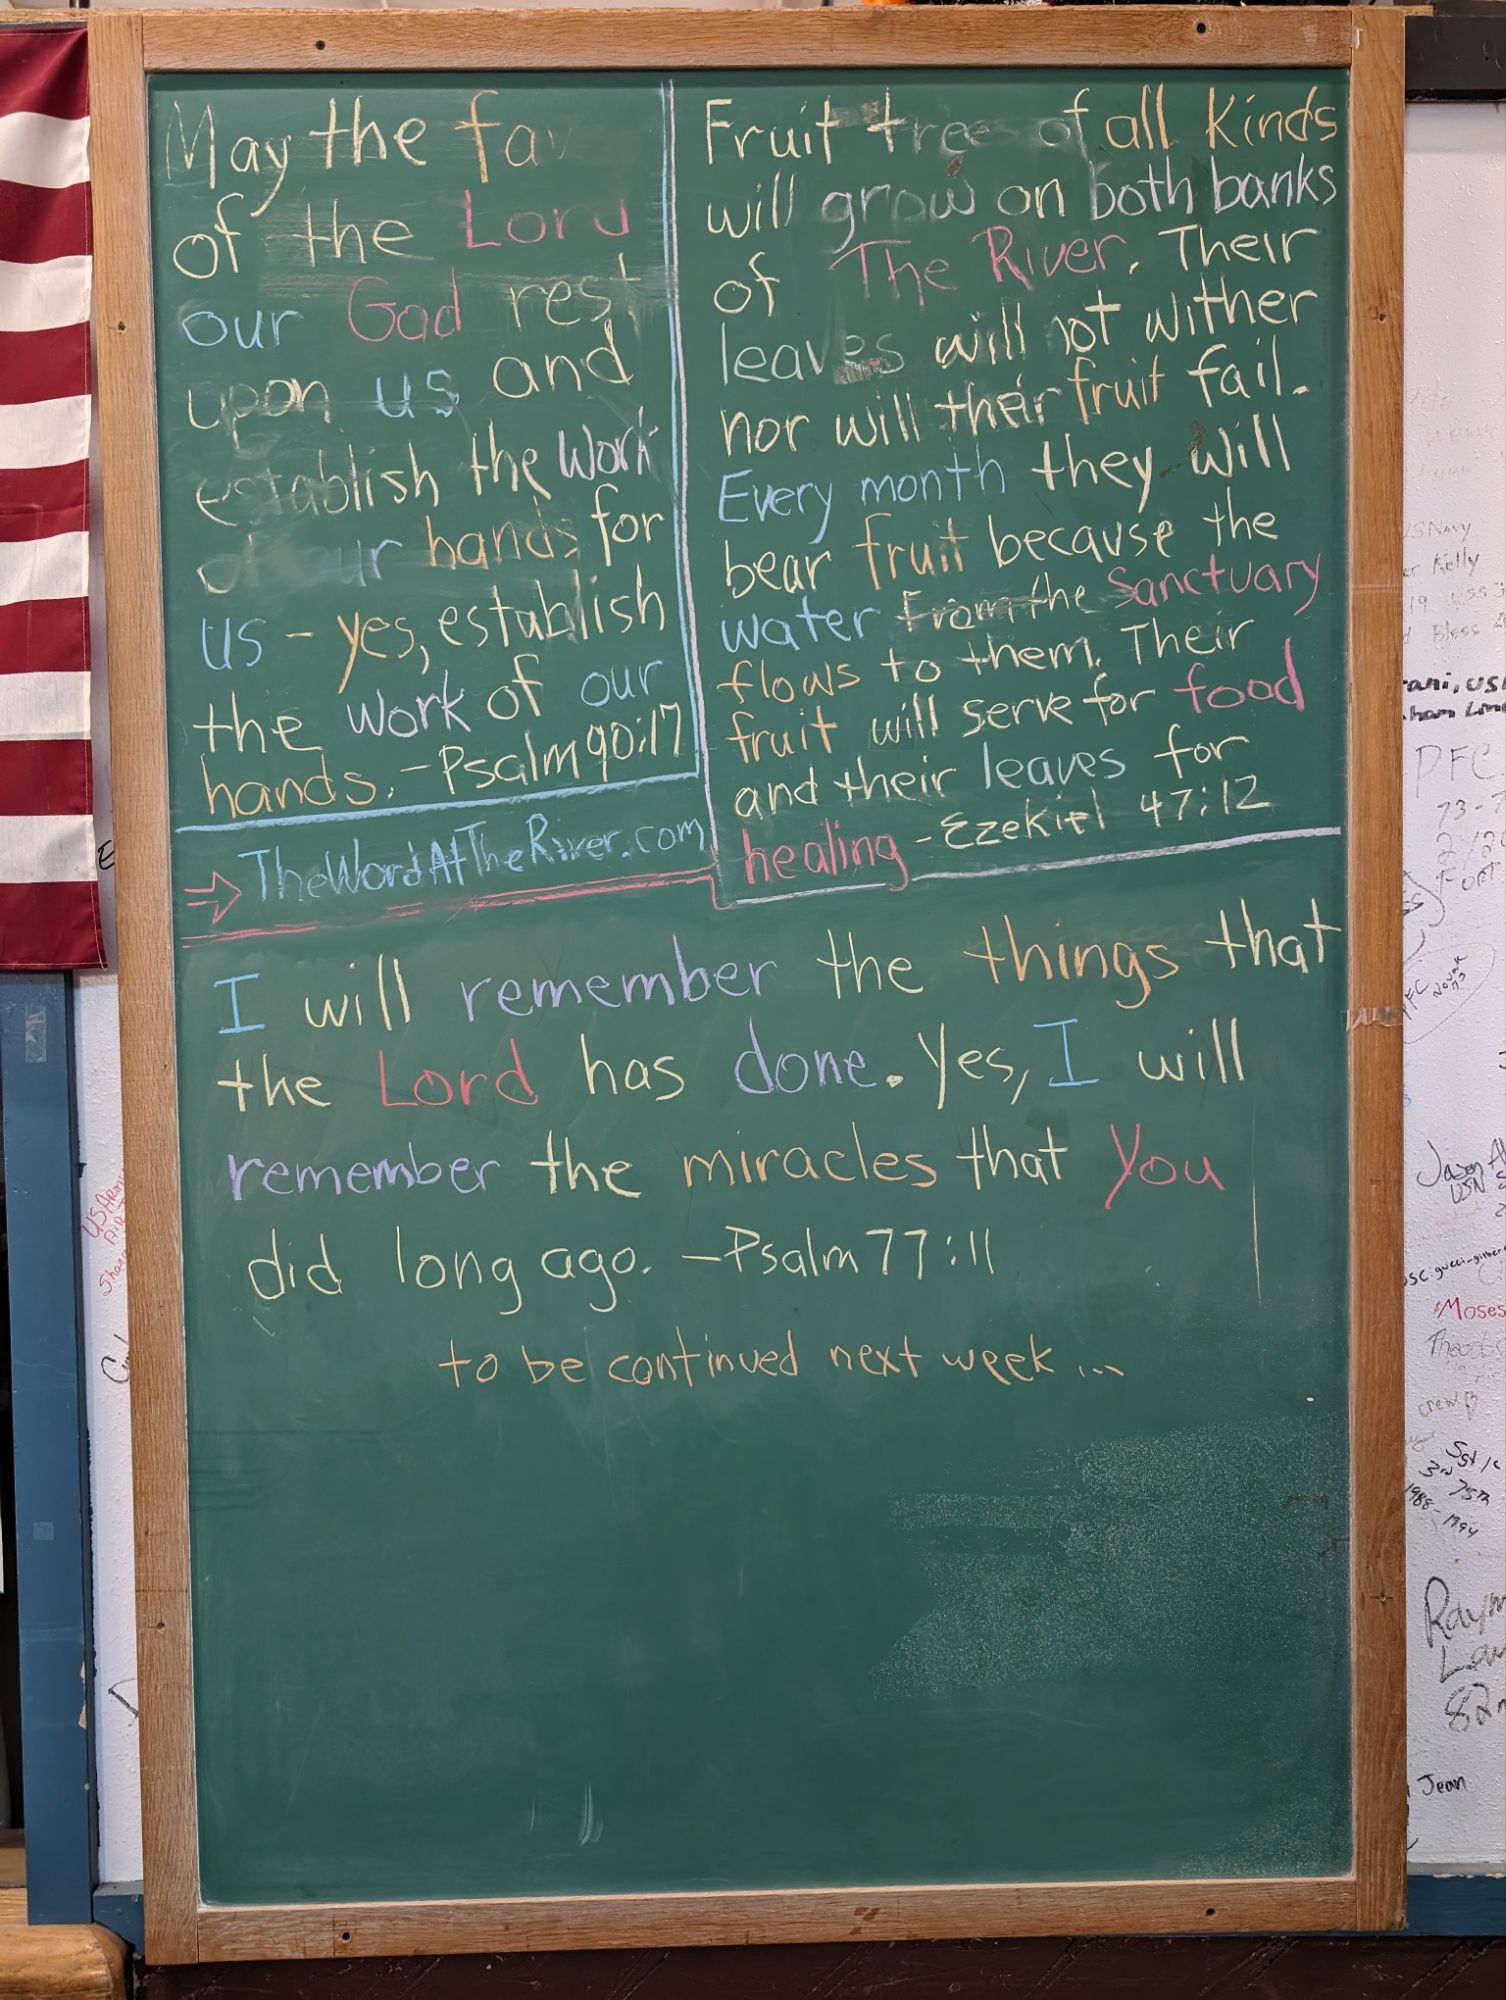 May the fav
of the Lord
our God rest
upon us and
establish the work
of our hands for
us - yes, establish
the work of our
hands. - Psalm 90:17
→ TheWordAtTheRiver.com
Fruit trees of all kinds
will grow on both banks
of The River. Their
leaves will not wither
nor will their fruit fail.
Every month they will
bear fruit because the
water from the Sanctuary
flows to them. Their
fruit will serve for food
and their leaves for
healing - Ezekiel 47:12
I will remember the things that
the Lord has done. Yes, I will
remember the miracles that You
did long ago. - Psalm 77:11
to be continued next week ...
Kelly
Bless
PFC
PFC
Moses
crew
3rd 75th
1988-1994
Jean